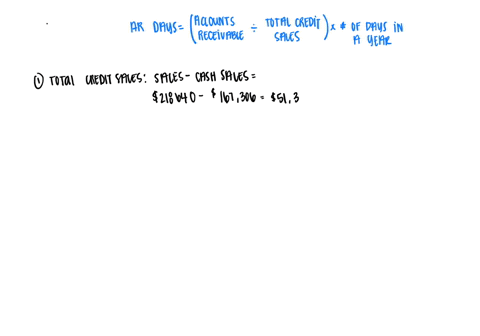 AR DAYS = (ACCOUNTS RECEIVABLE ÷ TOTAL CREDIT SALES) × # OF DAYS IN A YEAR
① TOTAL CREDIT SALES: SALES - CASH SALES =
$218640 - $167,306 = $51,3